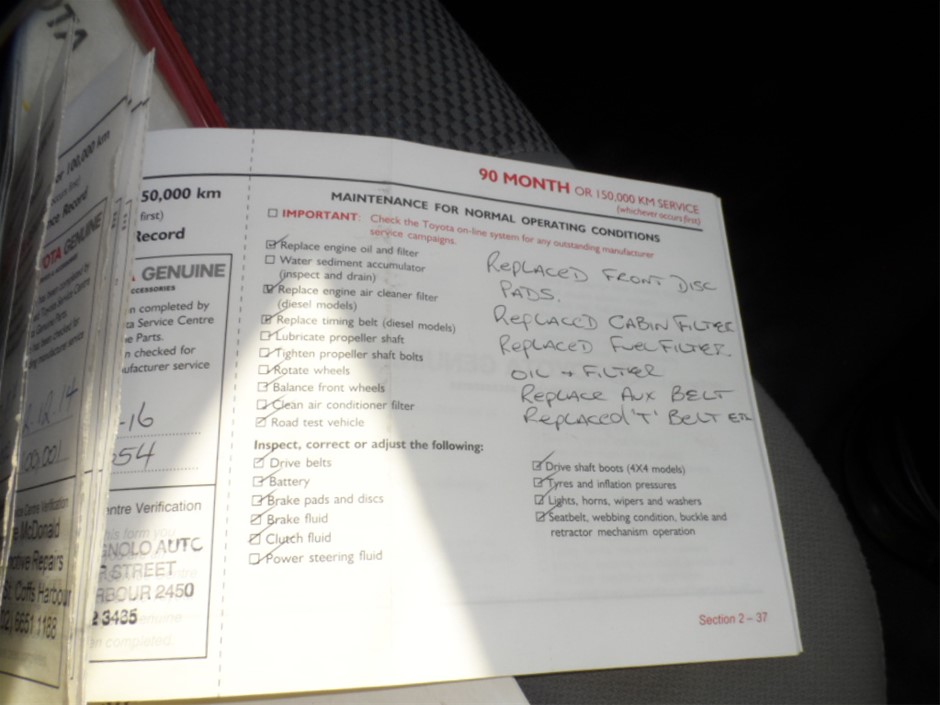 TA
or 100,000 km
ce Record
OTA GENUINE
12.14
00,001
e McDonald
otive Repairs
St. Coffs Harbour
02) 6651 1188
50,000 km
first)
Record
GENUINE
CCESSORIES
n completed by
ta Service Centre
e Parts.
n checked for
ufacturer service
-16
54
entre Verification
this form you
GNOLO AUTO
R STREET
RBOUR 2450
2 3435
enuine
en completed.
90 MONTH OR 150,000 KM SERVICE
(whichever occurs first)
MAINTENANCE FOR NORMAL OPERATING CONDITIONS
IMPORTANT: Check the Toyota on-line system for any outstanding manufacturer
service campaigns.
Replace engine oil and filter
Water sediment accumulator
(inspect and drain)
Replace engine air cleaner filter
(diesel models)
Replace timing belt (diesel models)
Lubricate propeller shaft
Tighten propeller shaft bolts
Rotate wheels
Balance front wheels
Clean air conditioner filter
Road test vehicle
REPLACED FRONT DISC
PADS.
REPLACED CABIN FILTER
REPLACED FUEL FILTER
OIL + FILTER
REPLACE AUX BELT
REPLACED 'T' BELT ETC
Inspect, correct or adjust the following:
Drive belts
Battery
Brake pads and discs
Brake fluid
Clutch fluid
Power steering fluid
Drive shaft boots (4X4 models)
Tyres and inflation pressures
Lights, horns, wipers and washers
Seatbelt, webbing condition, buckle and
retractor mechanism operation
Section 2 – 37